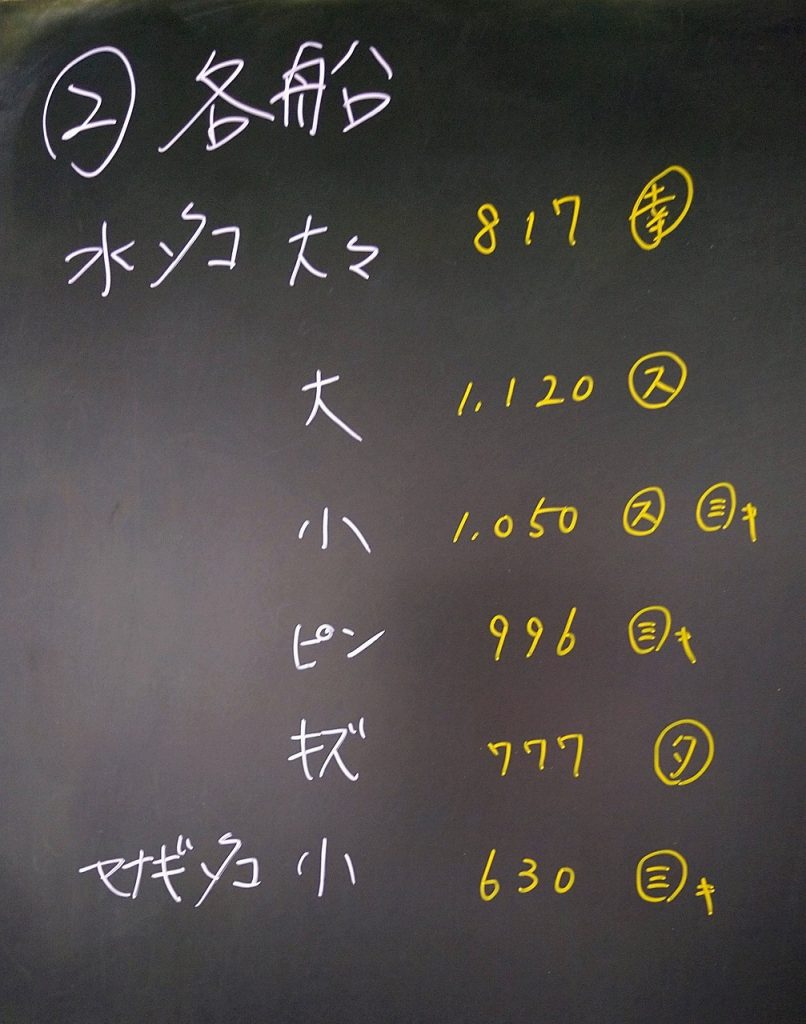 ② 各船
水ダコ 大々 817 ㊎
大 1.120 ㋜
小 1.050 ㋜ ㋯キ
ピン 996 ㋯キ
キズ 777 ㋟
ヤナギダコ 小 630 ㋯キ